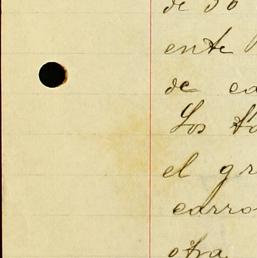 de 30
ente
de ca
Los ta
el gr
carro
otra